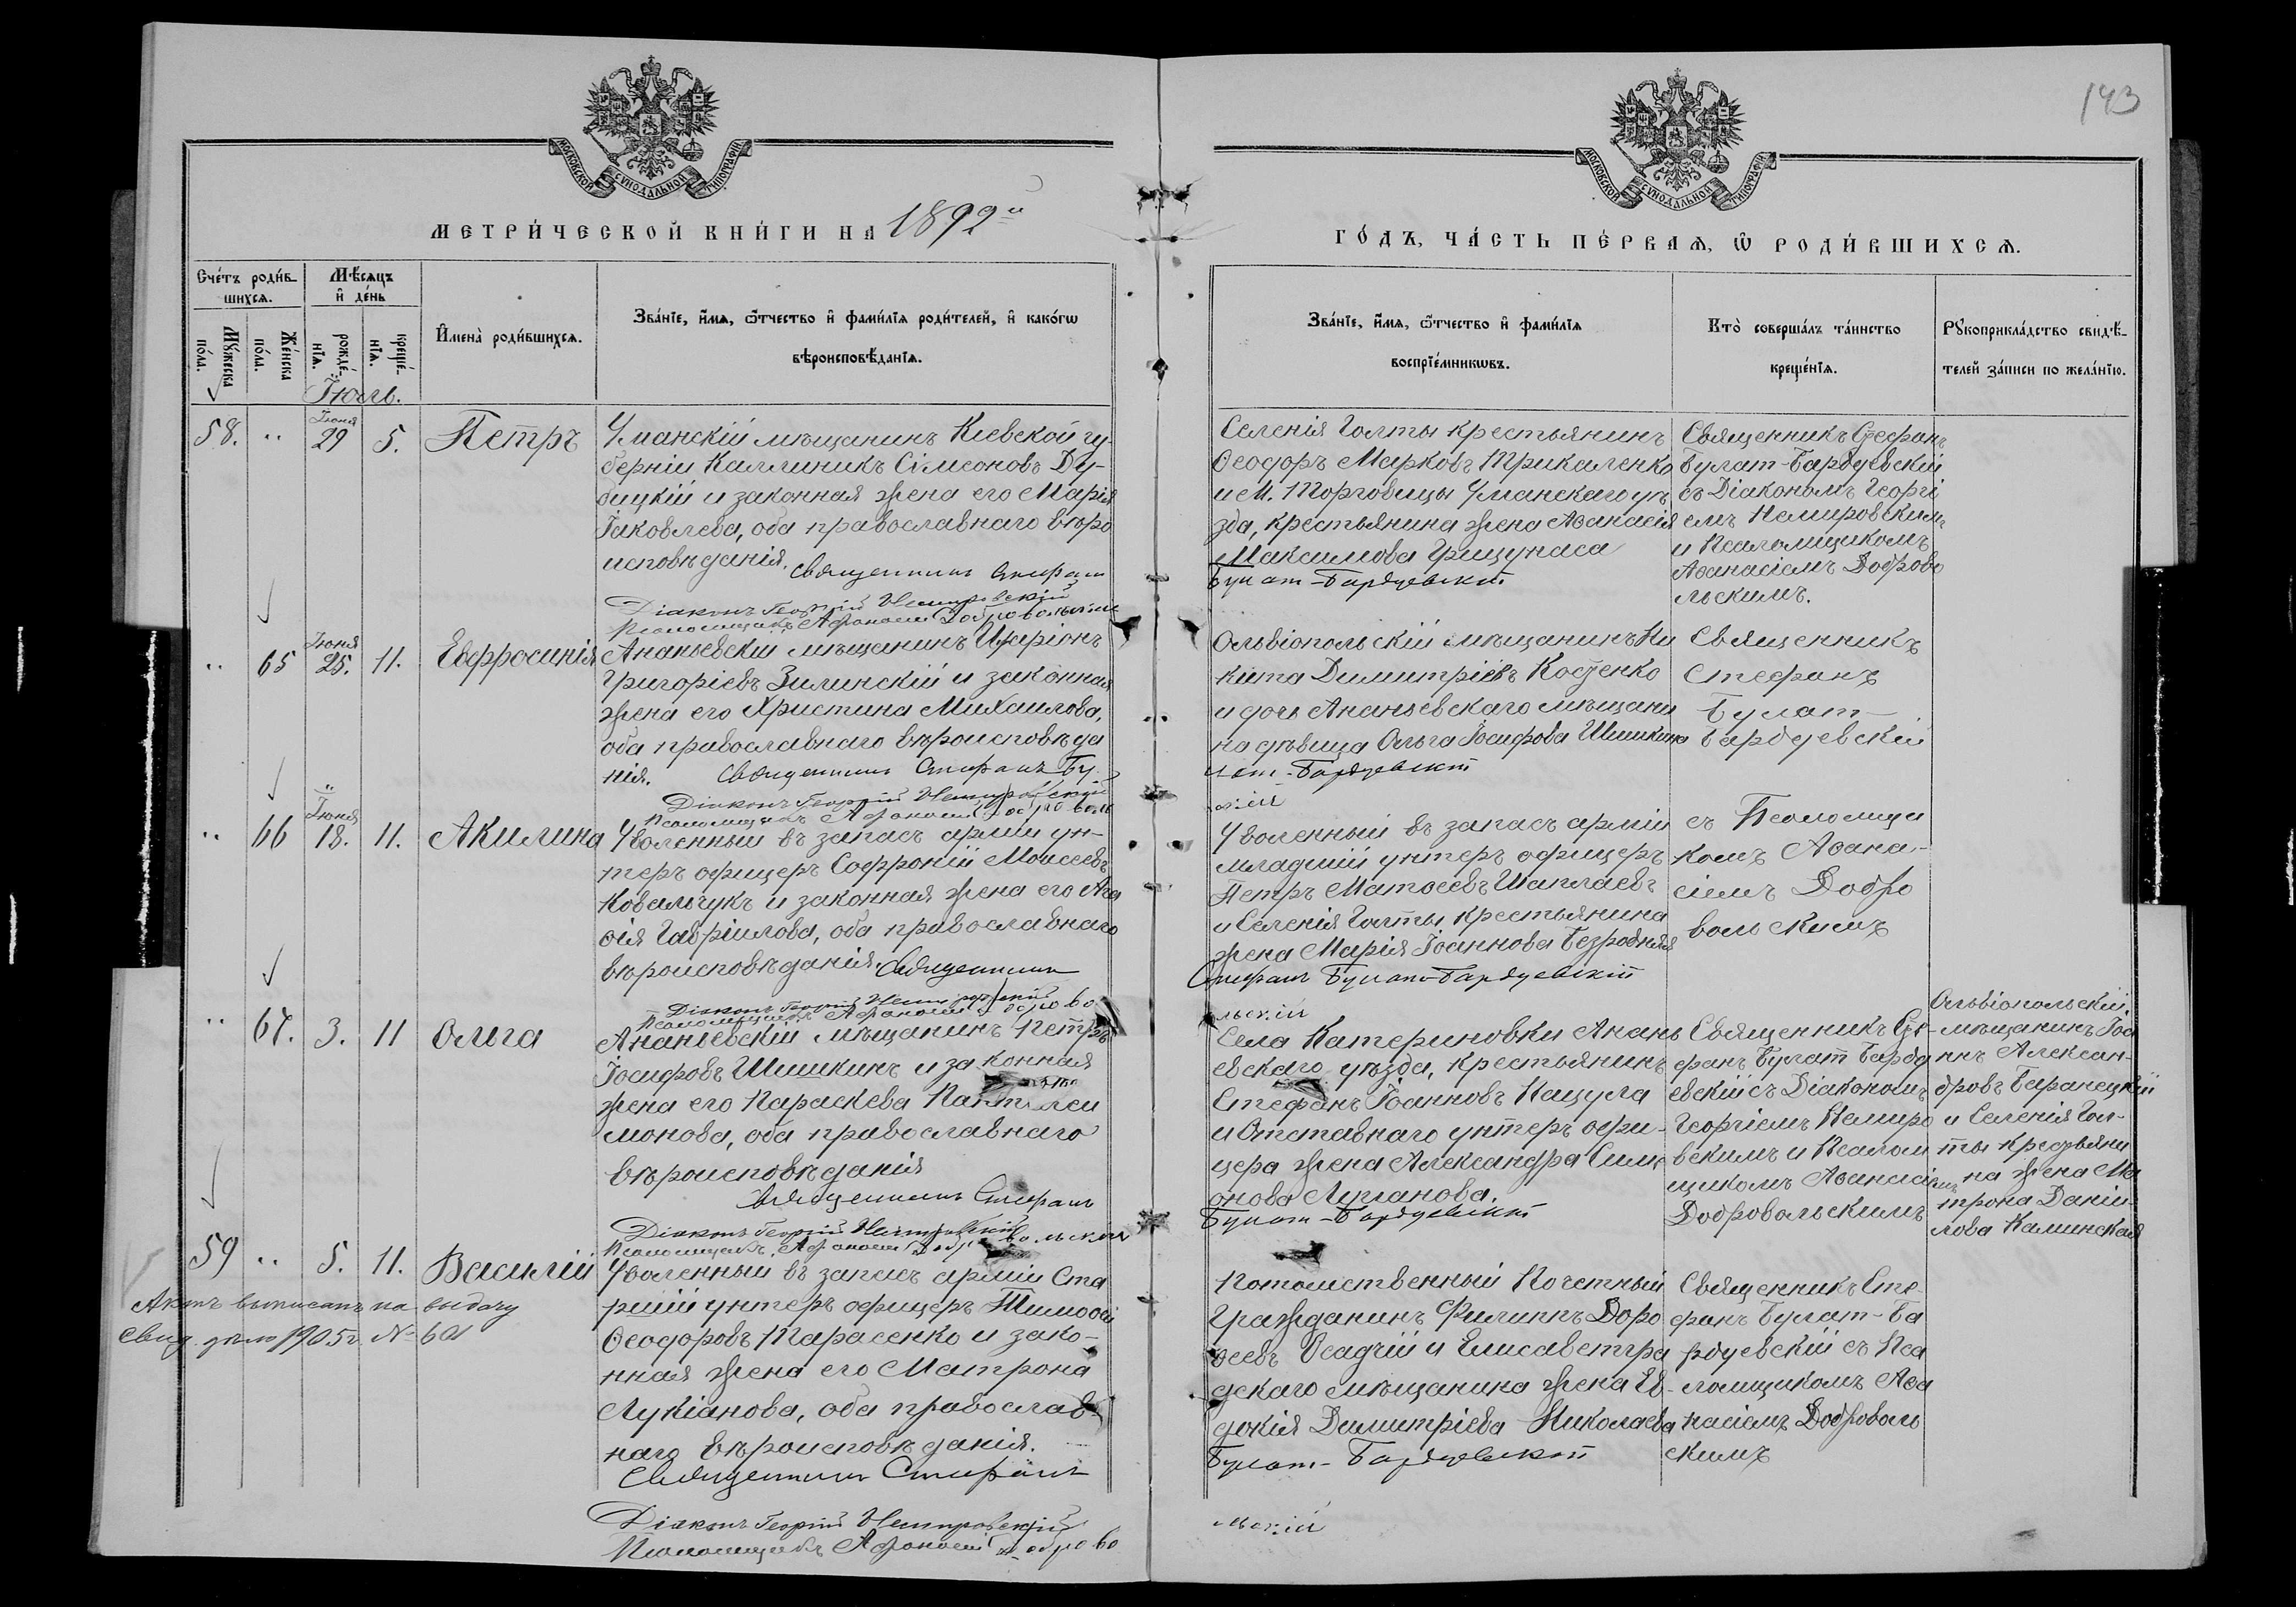 143
МОСКОВСКОЙ СУНОДАЛЬНОЙ ТИПОГРАФІИ
МОСКОВСКОЙ СУНОДАЛЬНОЙ ТИПОГРАФІИ
МЕТРИ́ЧЕСКОЙ КНИ́ГИ НА 1892й
ГО́ДЪ, ЧА́СТЬ ПЕ́РВАѦ, Ѡ РОДИ́ВШИХСѦ.
Сче́тъ роди́в-
шихсѧ.
Мꙋжеска по́ла.
Же́нска по́ла.
Мѣ́сѧцъ
и҆ де́нь
рожде́-
нїѧ.
креще́-
нїѧ.
И҆мена̀ роди́вшихсѧ.
Зва́нїе, и҆́мѧ, ѻ҆́тчество и҆ фами́лїѧ роди́телей, и҆ како́гѡ
вѣроисповѣ́данїѧ.
Зва́нїе, и҆́мѧ, ѻ҆́тчество и҆ фами́лїѧ
воспрїе́мникѡвъ.
Кто̀ соверша́лъ та́инство
креще́нїѧ.
Рꙋкоприкла́дство свидѣ́-
телей за́писи по жела́нїю.
Іюль.
58. " Іюня 29 5. Петръ
Уманскій мѣщанинъ Кіевской гу-
берніи Каллиникъ Сімеоновъ Ду-
бицкій и законная жена его Марія
Іаковлева, оба православнаго вѣро
исповѣданія. Священникъ Стефанъ
Діаконъ Георгій Немировскій
Псаломщикъ Афанасій Добровольскій
Селенія Голты крестьянинъ
Ѳеодоръ Марковъ Трикаленко
и М. Торговицы Уманскаго уѣ
зда, крестьянина жена Аѳанасія
Максимова Грицунаса
Булат-Бардуевскій
Священникъ Стефанъ
Булат-Бардуевскій
съ Діакономъ Георгі
емъ Немировскимъ
и Псаломщикомъ
Аѳанасіемъ Доброво
льскимъ.
" 65 Іюня 25. 11. Евфросинія
Ананьевскій мѣщанинъ Иларіонъ
Григоріевъ Зилинскій и законная
жена его Христина Михаилова,
оба православнаго вѣроисповѣда
нія. Священникъ Стефанъ Бу
Діаконъ Георгій Немировскій
Псаломщикъ Афанасій Доброволь
Ольвіопольскій мѣщанинъ Ни
кита Димитріевъ Костенко
и дочь Ананьевскаго мѣщани
на дѣвица Ольга Іосифова Шишкина
лат-Бардуевскій
скій
Священникъ
Стефанъ
Булат-
Бардуевскій
" 66 Іюня 18. 11. Акилина
Уволенный въ запасъ арміи ун-
теръ офицеръ Софроній Моисеевъ
Ковальчукъ и законная жена его Ага
ѳія Гавріилова, оба православнаго
вѣроисповѣданія. Священникъ
Діаконъ Георгій Немировскій
Псаломщикъ Афанасій Доброво
Уволенный въ запасъ арміи
младшій унтеръ офицеръ
Петръ Матѳеевъ Шаплаевъ
и Селенія Голты крестьянина
жена Марія Іоаннова Безродняя
Стефанъ Булат-Бардуевскій
льскій
съ Псаломщи
комъ Аѳана-
сіемъ Добро
вольскимъ
" 67. 3. 11 Ольга
Ананьевскій мѣщанинъ Петръ
Іосифовъ Шишкинъ и законная
жена его Параскева Пантелеи
монова, оба православнаго
вѣроисповѣданія
Священникъ Стефанъ
Діаконъ Георгій Немировскій
Псаломщикъ Афанасій Добровольскій
Села Катериновки Анань
евскаго уѣзда, крестьянинъ
Стефанъ Іоанновъ Кацула
и Отставнаго унтеръ офи-
цера жена Александра Симе
онова Луганова.
Булат-Бардуевскій
Священникъ Сте-
фанъ Булат Барду
евскій съ Діакономъ
Георгіемъ Немиро
вскимъ и Псалом
щикомъ Аѳанасіемъ
Добровольскимъ
Ольвіопольскій
мѣщанинъ Іоа
ннъ Алексан-
дровъ Баранецкій
и Селенія Гол-
ты крестьяни
на жена Ма
трона Даніи-
лова Калинская
59 " 5. 11. Василій
Актъ выписанъ на выдачу
свид. дѣло 1905 г. №
Уволенный въ запасъ арміи Ста
ршій унтеръ офицеръ Тимоѳей
Ѳеодоровъ Тарасенко и зако-
нная жена его Матрона
Лукіанова, оба православ-
наго вѣроисповѣданія.
Священникъ Стефанъ
Діаконъ Георгій Немировскій
Псаломщикъ Афанасій Доброво
Потомственный Почетный
Гражданинъ Филиппъ Доро
ѳеевъ Осадчій и Елисаветгра
дскаго мѣщанина жена Ев-
докія Димитріева Николаева
Булат-Бардуевскій
льскій
Священникъ Сте-
фанъ Булат-Ба
рдуевскій съ Пса
ломщикомъ Аѳа
насіемъ Доброволь
скимъ